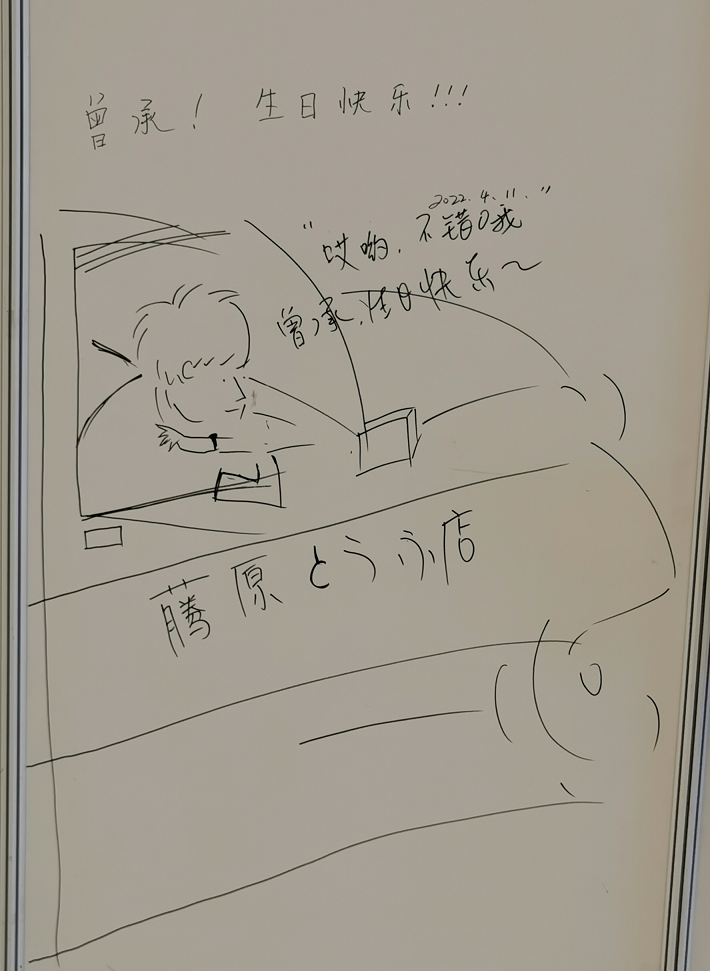 曾承！ 生日快乐!!!
2022.4.11.
“哎哟，不错哦”
曾承，生日快乐～
藤原とうふ店